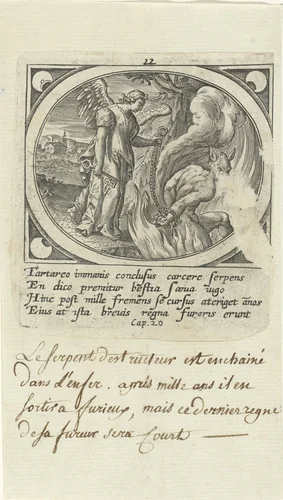 12
Tartareo immanis conclusus carcere serpens
En dico premitur bestia saeva iugo
Hinc post mille fremens se cursus ateriget anos
Eius at ista brevis regna furoris erunt
Cap. 20
Le serpent destructeur est enchainé
dans l'enfer. après mille ans il en
sortira furieux, mais ce dernier regne
de sa fureur sera Court —